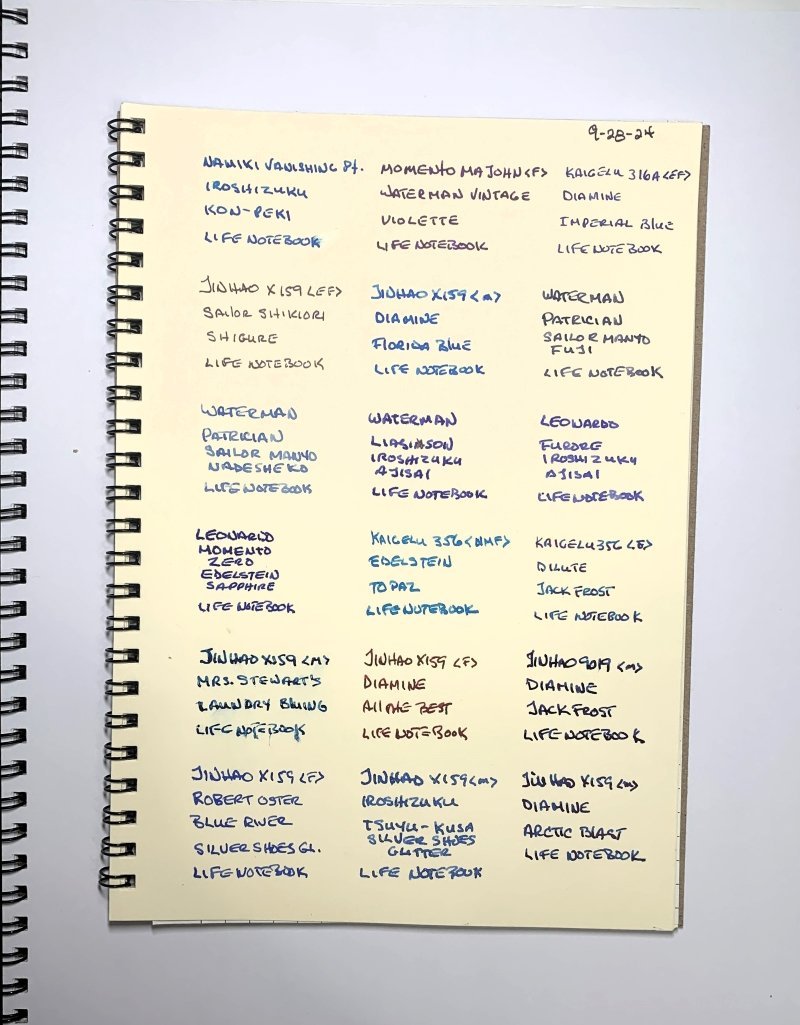 9-28-24
NAMIKI VANISHING Pt.
IROSHIZUKU
KON-PEKI
LIFE NOTEBOOK
MOMENTO MAJOHN <F>
WATERMAN VINTAGE
VIOLETTE
LIFE NOTEBOOK
KAIGELU 316A <EF>
DIAMINE
IMPERIAL BLUE
LIFE NOTEBOOK
JINHAO X159 <EF>
SAILOR SHIKIORI
SHIGURE
LIFE NOTEBOOK
JINHAO X159 <M>
DIAMINE
FLORIDA BLUE
LIFE NOTEBOOK
WATERMAN
PATRICIAN
SAILOR MANYO
FUJI
LIFE NOTEBOOK
WATERMAN
PATRICIAN
SAILOR MANYO
NADESHEKO
LIFE NOTEBOOK
WATERMAN
IROSHIZUKU
AJISAI
LIFE NOTEBOOK
LEONARDO
FURORE
IROSHIZUKU
AJISAI
LIFE NOTEBOOK
LEONARDO
MOMENTO
ZERO
EDELSTEIN
SAPPHIRE
LIFE NOTEBOOK
KAIGELU 356 <MMF>
EDELSTEIN
TOPAZ
LIFE NOTEBOOK
KAIGELU 356 <F>
DILUTE
JACK FROST
LIFE NOTEBOOK
JINHAO X159 <M>
MRS. STEWART'S
LAUNDRY BLUING
LIFE NOTEBOOK
JINHAO X159 <F>
DIAMINE
All THE BEST
LIFE NOTEBOOK
JINHAO 9019 <M>
DIAMINE
JACK FROST
LIFE NOTEBOOK
JINHAO X159 <F>
ROBERT OSTER
BLUE RIVER
SILVER SHOES GL.
LIFE NOTEBOOK
JINHAO X159 <M>
IROSHIZUKU
TSUYU-KUSA
SILVER SHOES
GLITTER
LIFE NOTEBOOK
JINHAO X159 <M>
DIAMINE
ARCTIC BLAST
LIFE NOTEBOOK